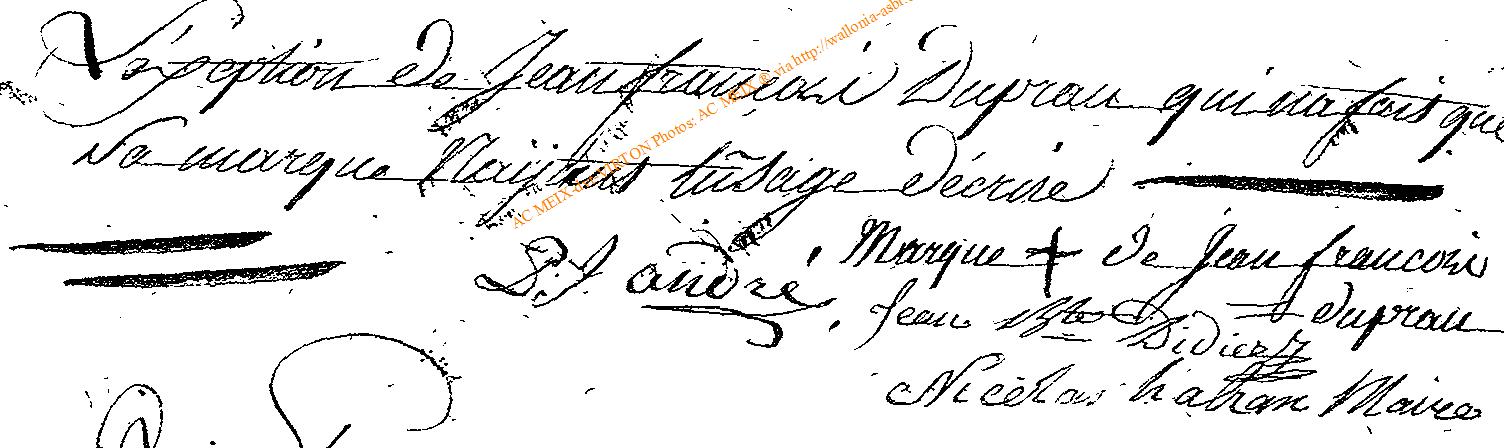 L'exeption de Jean françois Duprau qui na fais que
Sa marque Nayans lusage décrire
P. J. andré. Marque + de Jean francois
Jean Bte Didier duprau
Nicolas Maire
AC MEIX-dvt-VIRTON Photos: AC MEIX © via http://wallonia-asbl